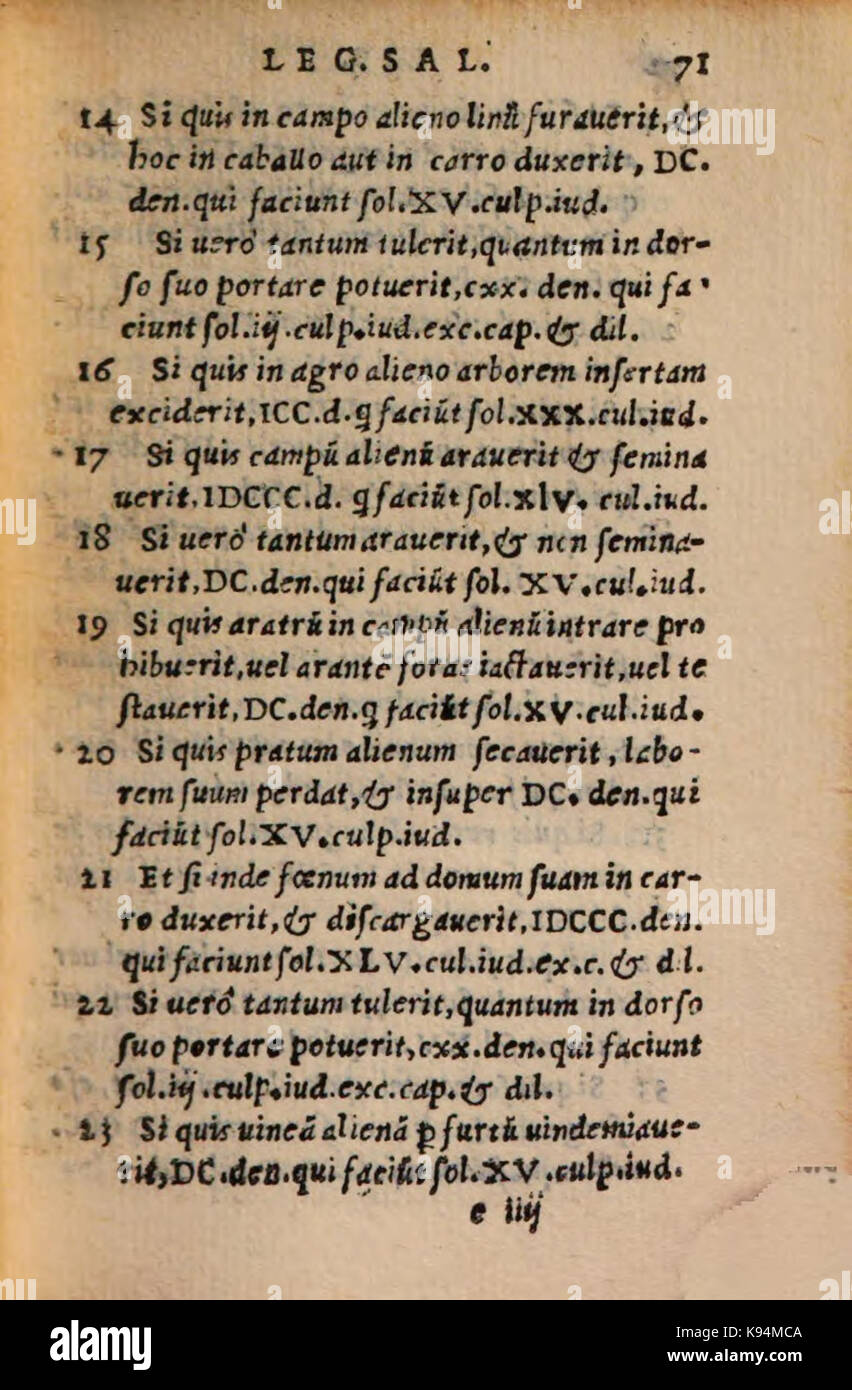 LEG. SAL. 71
14 Si quis in campo alieno linũ furauerit, &
hoc in caballo aut in carro duxerit, DC.
den. qui faciunt sol. XV. culp. iud.
15 Si uerò tantum tulerit, quantum in dor-
so suo portare potuerit, cxx. den. qui fa-
ciunt sol. iij. culp. iud. exc. cap. & dil.
16 Si quis in agro alieno arborem insertam
exciderit, ICC. d. q̃ faciũt sol. xxx. cul. iud.
17 Si quis campũ alienũ arauerit & semina
uerit, IDCCC. d. q̃ faciũt sol. xlv. cul. iud.
18 Si uerò tantum arauerit, & non semina-
uerit, DC. den. qui faciũt sol. XV. cul. iud.
19 Si quis aratrũ in campũ alienũ intrare pro
hibuerit, uel arantẽ foras iactauerit, uel te
stauerit, DC. den. q̃ faciũt sol. xv. cul. iud.
20 Si quis pratum alienum secauerit, labo-
rem suum perdat, & insuper DC. den. qui
faciũt sol. XV. culp. iud.
21 Et si inde fœnum ad domum suam in car-
ro duxerit, & discargauerit, IDCCC. den.
qui faciunt sol. XLV. cul. iud. ex. c. & dil.
22 Si uerò tantum tulerit, quantum in dorso
suo portare potuerit, cxx. den. qui faciunt
sol. iij. culp. iud. exc. cap. & dil.
23 Si quis uineã alienã ꝑ furtũ uindemiaue-
rit, DC. den. qui faciũt sol. XV. culp. iud.
e iiij
alamy
Image ID: K94MCA
www.alamy.com